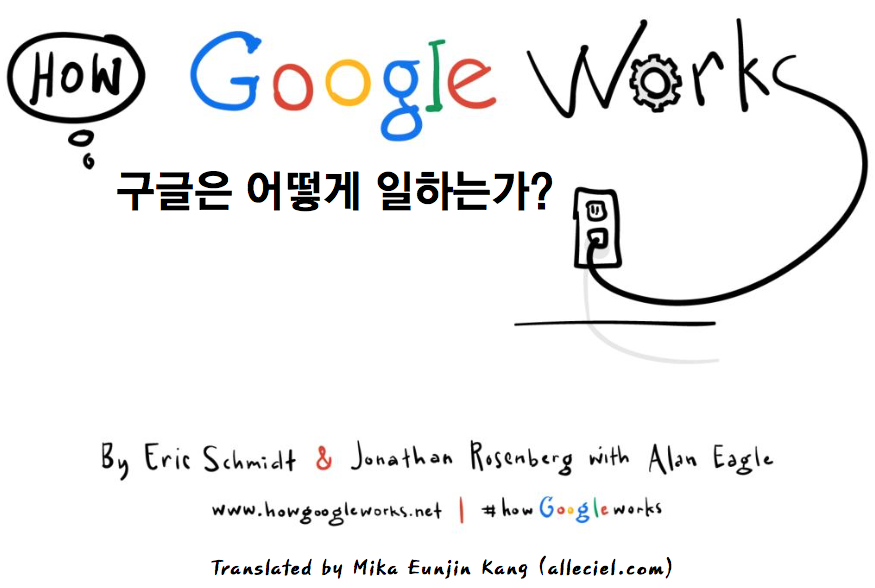 How Google Works
구글은 어떻게 일하는가?
By Eric Schmidt & Jonathan Rosenberg with Alan Eagle
www.howgoogleworks.net | #howGoogleworks
Translated by Mika Eunjin Kang (alleciel.com)